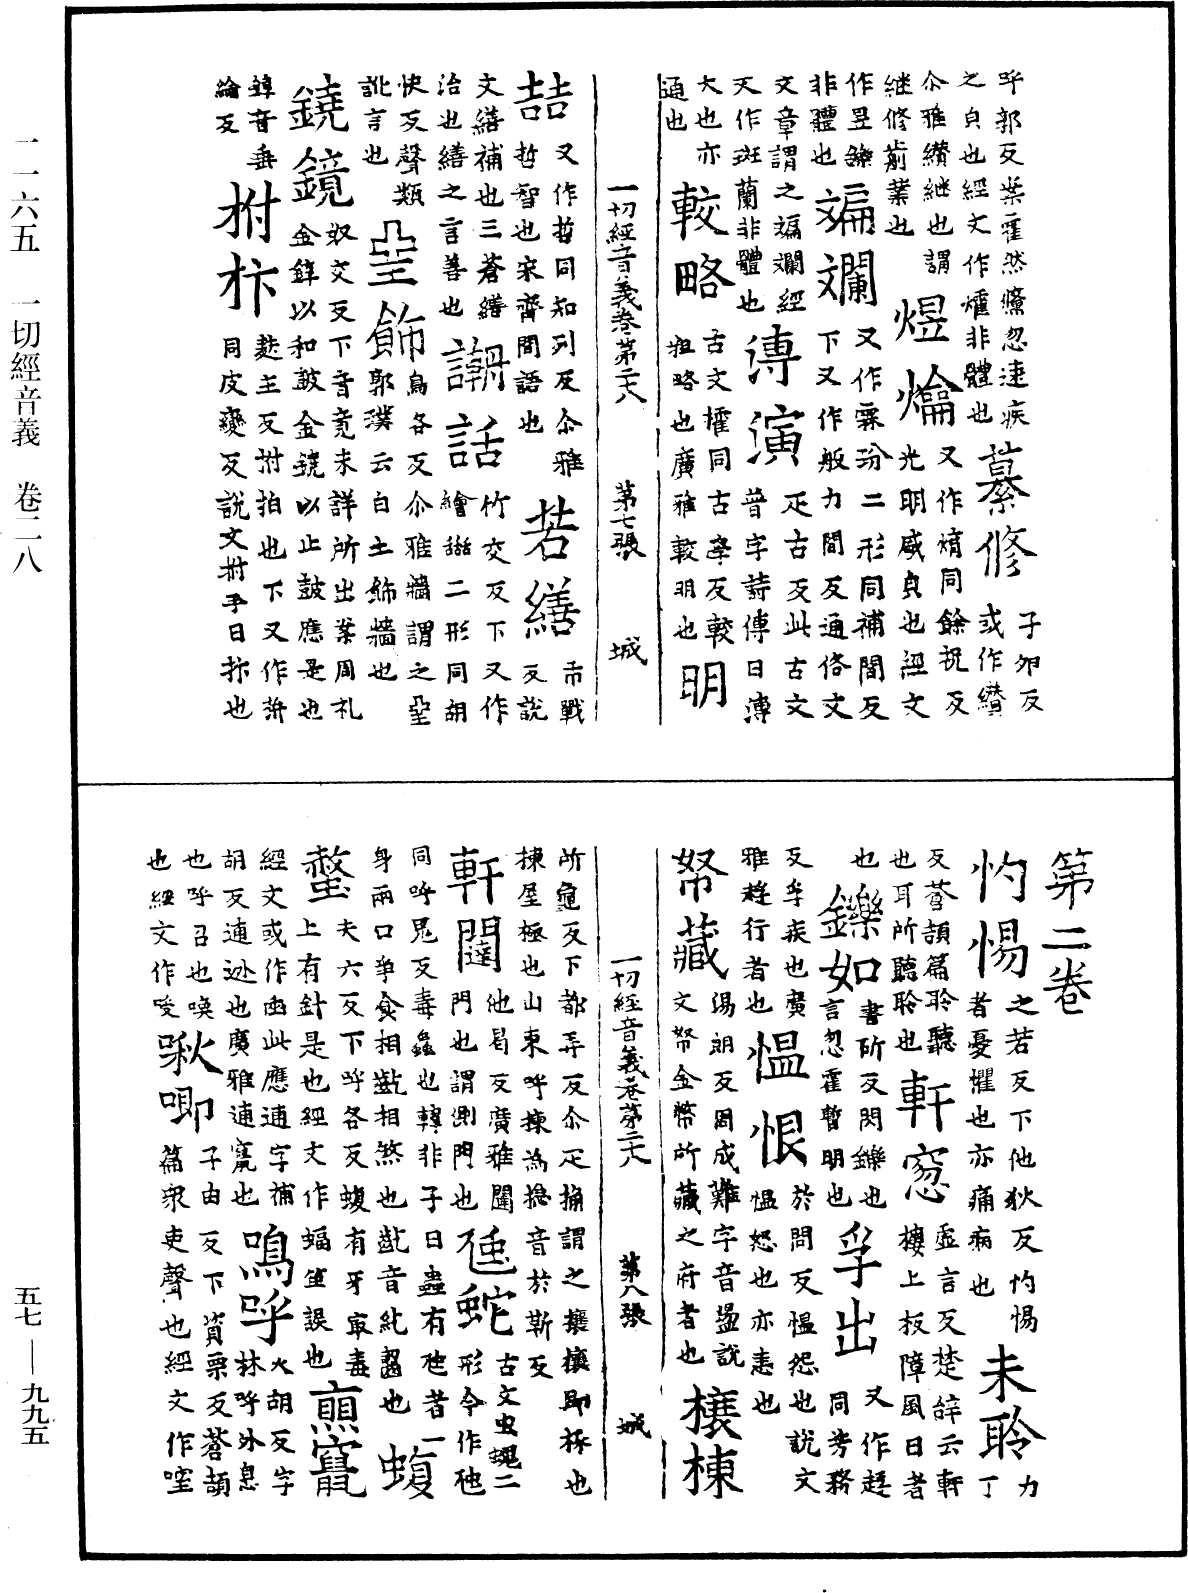 呼郭反案霍然儵忽速疾
之皃也經文作㸌非體也 纂修 子夘反或作纘
尒雅纘継也謂継修前業也 煜爚 又作焴同餘祝反
光明盛皃也經文作昱鑠非體也 斒斕 又作霖玢二形同補間反
下又作般力間反通俗文文章謂之斒斕經
文作斑蘭非體也 溥演 疋古反此古文
普字詩傳曰溥大也亦通也 較略 古文㩁同古學反較
粗略也廣雅較明也 明
一切經音義卷第二十八 第七張 城
喆 又作哲同知列反尒雅
哲智也宋齊間語也 若繕 市戰反說
文繕補也三蒼繕治也繕之言善也 謿話 竹交反下又作
繪䛡二形同胡快反聲類訛言也 堊飾 烏各反尒雅牆謂之堊
郭璞云白土飾牆也
鐃鏡 奴交反下音竟未詳所出案周礼
金錞以和鼓金鐃以止鼓應是也
錞音垂綸反 拊抃 麩主反拊拍也下又作𢪛
同皮變反說文拊手曰抃也
第二卷
灼惕 之若反下他狄反灼惕
者憂懼也亦痛病也 未聆 力丁
反蒼頡篇聆聽也耳所聽聆也 軒窓 虛言反楚辭云軒
樓上板障風日者也 鑠如 書斫反閃鑠也
言忽霍暫明也 孚出 又作趕同芳務
反孚疾也廣雅趕行者也 愠恨 於問反愠怨也說文
愠怒也亦恚也
帑藏 湯朗反周成難字音盪說
文帑金幣所藏之府者也 榱棟
所龜反下都弄反尒疋桷謂之榱榱即椽也
棟屋極也山東呼棟為㯶音於斯反
軒闥 他曷反廣雅闥門也謂測門也 虺蛇 古文虫螝二形今作虺
同呼鬼反毒蟲也韓非子曰蟲有虺者一
身兩口爭食相齕相煞也齕音紇齧也 蝮
螫 上有針是也經文作蝠 夫六反下呼各反蝮有牙㝡毒
誤也 𤍽竄
經文或作凾此應逋字補
胡反逋迯也廣雅逋竄也 鳴呼 火胡反字林呼外息
也呼召也喚也經文作唆 啾唧 子由反下資栗反蒼頡
篇衆吏聲也經文作唑
一切經音義卷第二十八 第八張 城
二一六五 一切經音義 卷二八
五七—九九五